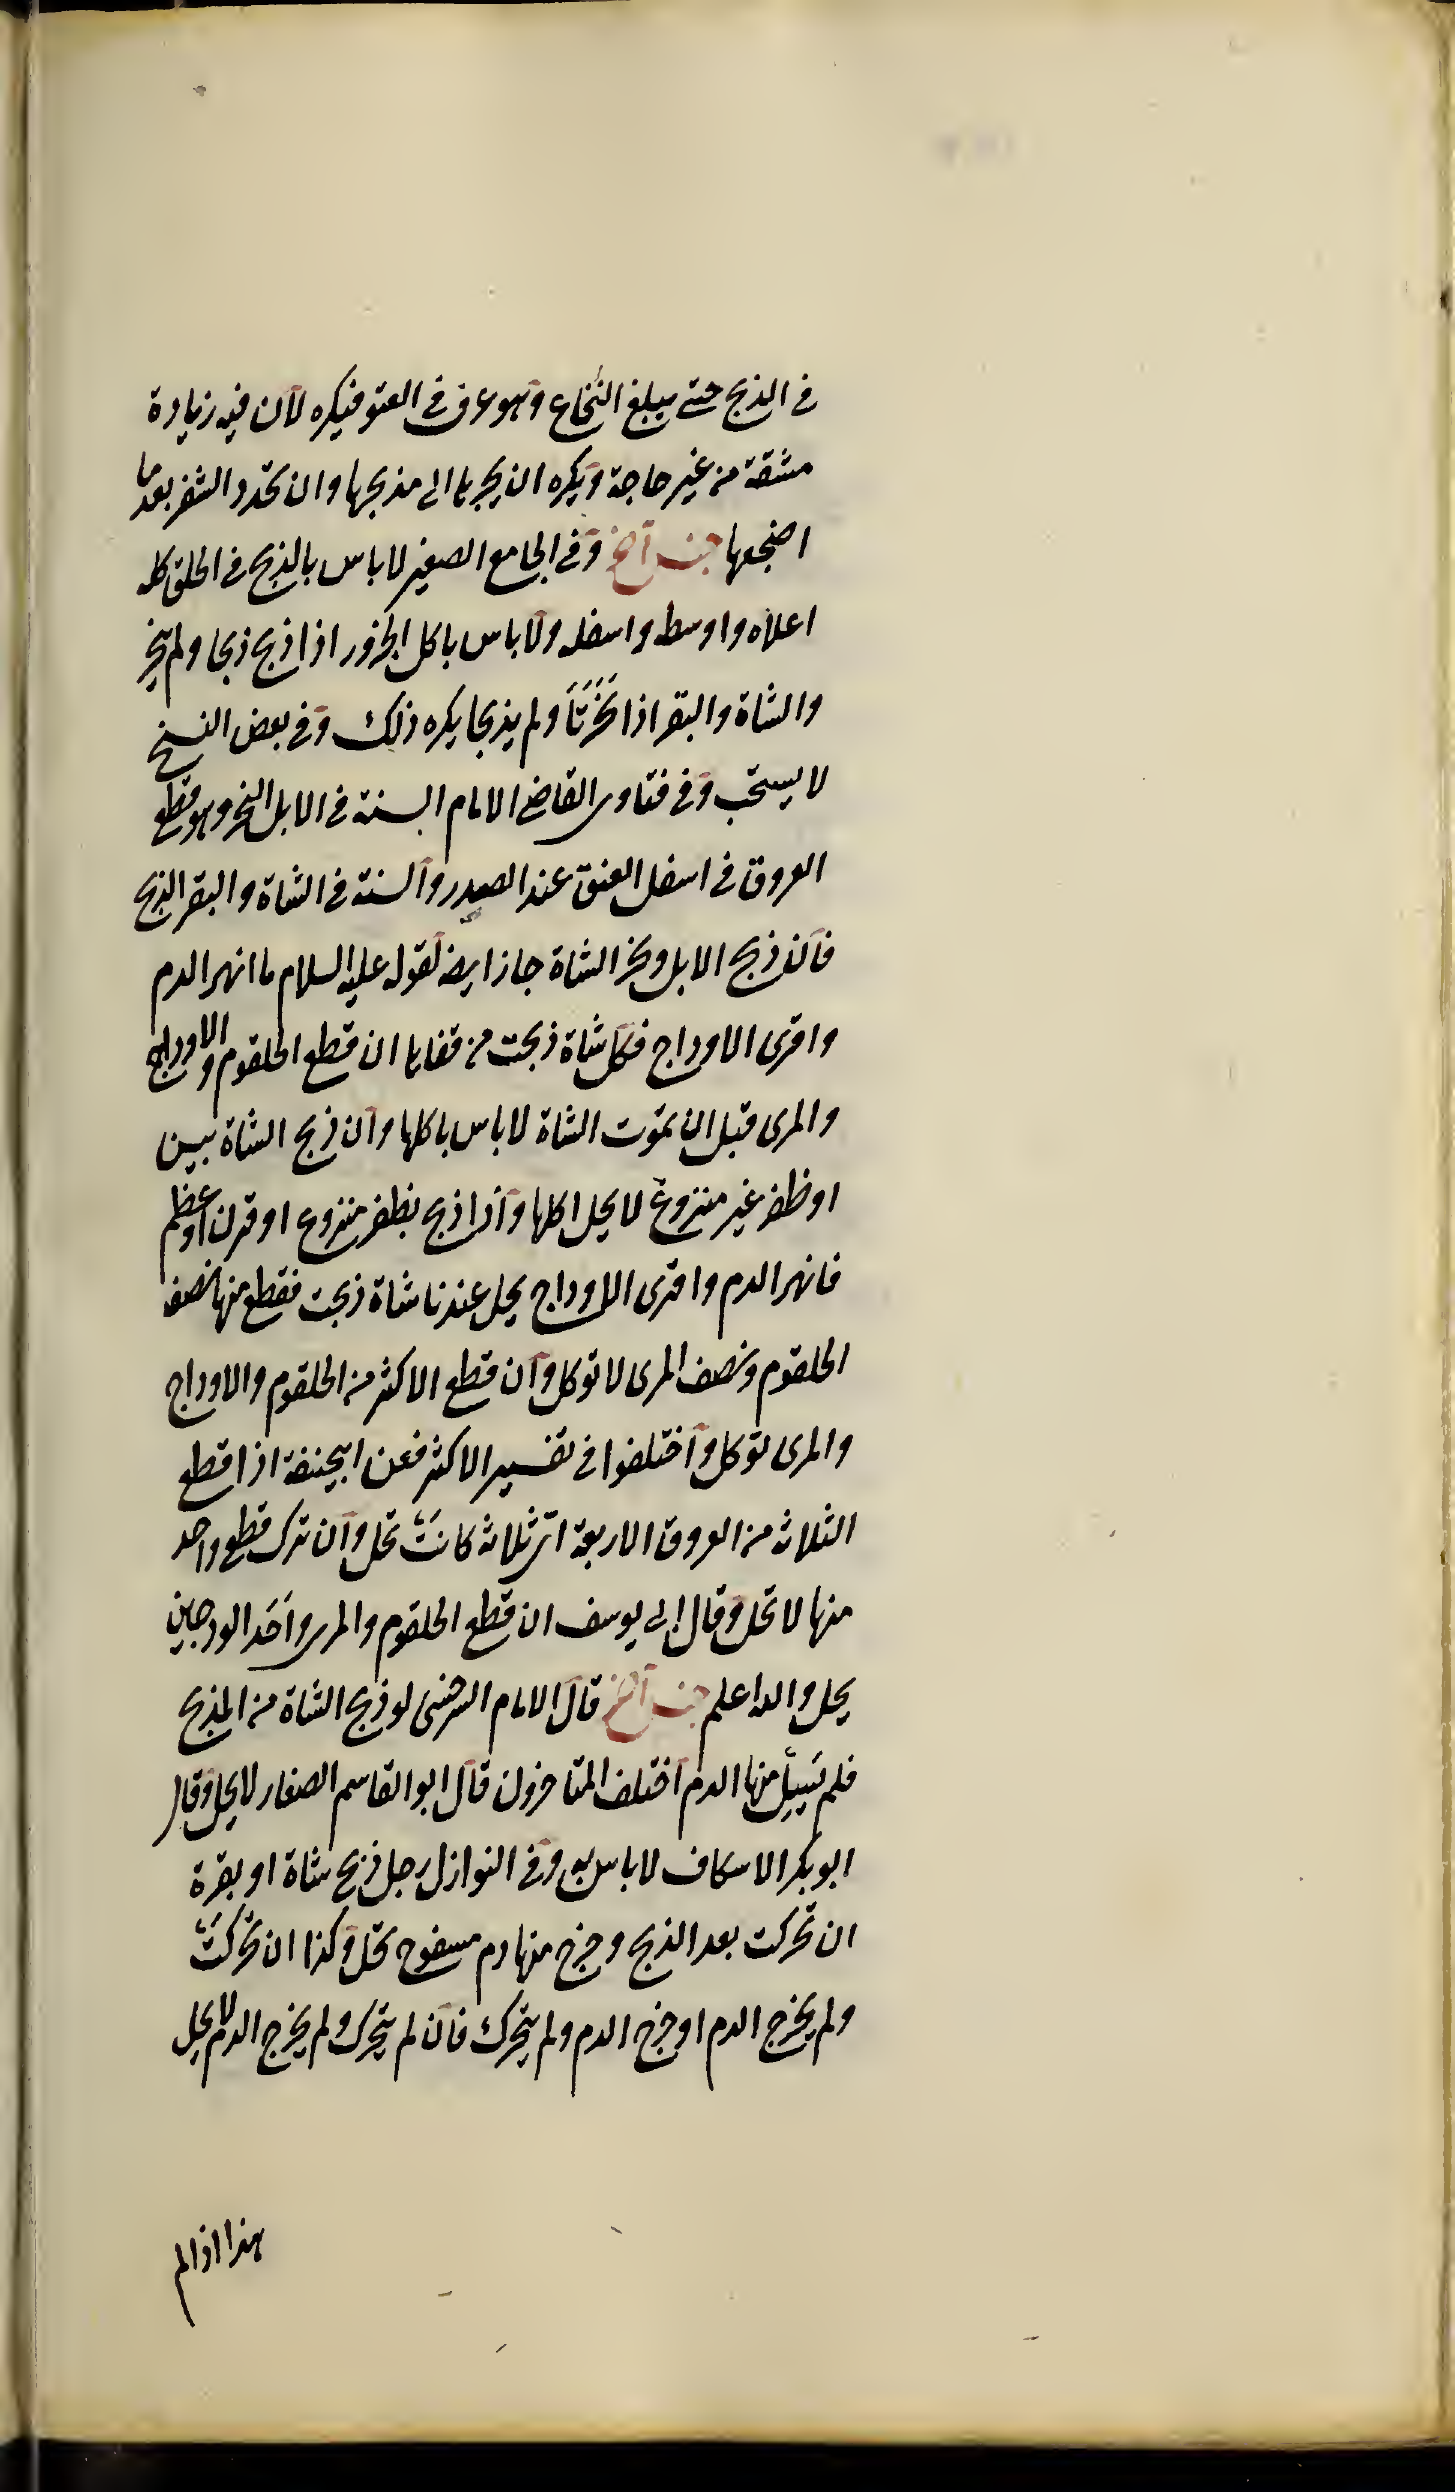 في الذبح حتى يبلغ النخاع وهو عرق في العنق فيكره لان فيه زيادة
مشقة من غير حاجة ويكره ان يجرها الى مذبحها وان يحدد الشفر بعد ما
اضجعها جنس آخر وفي الجامع الصغير لا باس بالذبح في الحلق كله
اعلاه واوسطه واسفله ولا باس باكل الجزور اذا ذبح ذبحا ولم ينحر
والشاة والبقر اذا نُحَرَتَا ولم يذبحا يكره ذلك وفي بعض النسخ
لا يستحب وفي فتاوى القاضي الامام السنة في الابل النحر وهو قطع
العروق في اسفل العنق عند الصدر والسنة في الشاة والبقر الذبح
فان ذبح الابل ونحر الشاة جاز ايضا لقوله عليه السلام ما انهر الدم
وافرى الاوداج فكل شاة ذبحت من قفاها ان قطع الحلقوم والاوداج
والمرى قبل ان تموت الشاة لا باس باكلها وان ذبح الشاة بسن
او ظفر غير منزوع لا يحل اكلها واذا ذبح بظفر منزوع او قرن او عظم
فانهر الدم وافرى الاوداج يحل عندنا شاة ذبحت فقطع منها نصف
الحلقوم ونصف المرى لا توكل وان قطع الاكثر من الحلقوم والاوداج
والمرى توكل واختلفوا في تفسير الاكثر فعن ابيحنيفة اذا قطع
الثلاثه من العروق الاربعة اى ثلاثه كانت تحل وان ترك قطع واحد
منها لا تحل وقال ابي يوسف ان قطع الحلقوم والمرى واحد الودجين
يحل والله اعلم جنس آخر قال الامام السرخسى لو ذبح الشاة من المذبح
فلم يسيل منها الدم اختلف المتاخرون قال ابو القاسم الصفار لا يحل وقال
ابو بكر الاسكاف لا باس به وفي النوازل رجل ذبح شاة او بقرة
ان تحركت بعد الذبح وخرج منها دم مسفوح تحل وكذا ان تحركت
ولم يخرج الدم او خرج الدم ولم يتحرك فان لم يتحرك ولم يخرج الدم لا يحل
هذا اذا لم